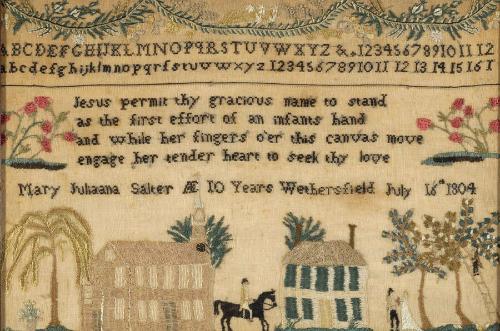 ABCDEFGHIJKLMNOPQRSTUVWXYZ &. 123456789 10 11 12
abcdefghijklmnopqrſstuvwxyz 123456789 10 11 12 13 14 15 16 1
Jesus permit thy gracious name to stand
as the first effort of an infants hand
and while her fingers o'er this canvas move
engage her tender heart to seek thy love
Mary Juliaana Salter Æ 10 Years Wethersfield July 16th 1804